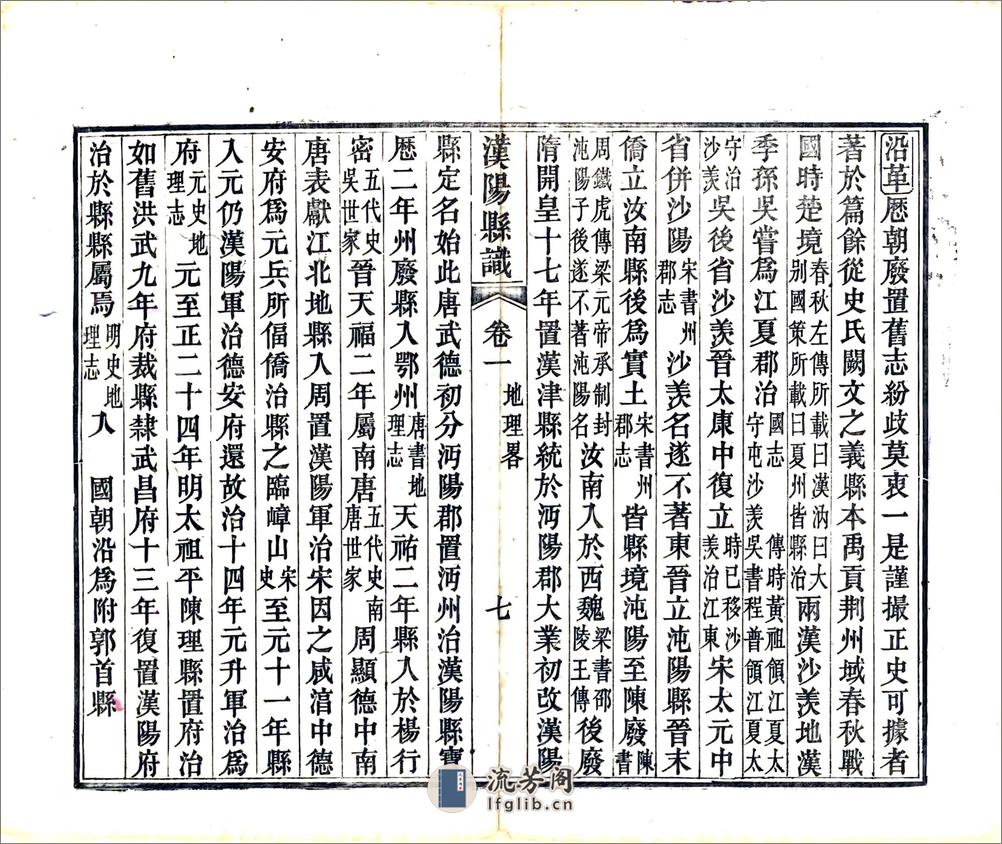 沿革歷朝廢置舊志紛歧莫衷一是謹撮正史可據者
著於篇餘從史氏闕文之義縣本禹貢荆州域春秋戰
國時楚境春秋左傳所載曰漢汭曰大别國策所載曰夏州皆縣治兩漢沙羡地漢
季孫吳嘗爲江夏郡治國志傳時黃祖領江夏太守屯沙羡吳書程普領江夏太
守治沙羡吳後省沙羡晉太康中復立時已移沙羡治江東宋太元中
省併沙陽宋書州郡志沙羡名遂不著東晉立沌陽縣晉末
僑立汝南縣後爲實土宋書州郡志皆縣境沌陽至陳廢陳書
周鐵虎傳梁元帝承制封沌陽子後遂不著沌陽名汝南入於西魏梁書邵陵王傳後廢
隋開皇十七年置漢津縣統於沔陽郡大業初改漢陽
漢陽縣識 卷一 地理畧 七
縣定名始此唐武德初分沔陽郡置沔州治漢陽縣寶
歷二年州廢縣入鄂州唐書地理志天祐二年縣入於楊行
密五代史吳世家晉天福二年屬南唐五代史南唐世家周顯德中南
唐表獻江北地縣入周置漢陽軍治宋因之咸湻中德
安府爲元兵所偪僑治縣之臨嶂山宋史至元十一年縣
入元仍漢陽軍治德安府還故治十四年元升軍治爲
府元史地理志元至正二十四年明太祖平陳理縣置府治
如舊洪武九年府裁縣隸武昌府十三年復置漢陽府
治於縣縣屬焉明史地理志入 國朝沿爲附郭首縣
流芳阁
lfglib.cn